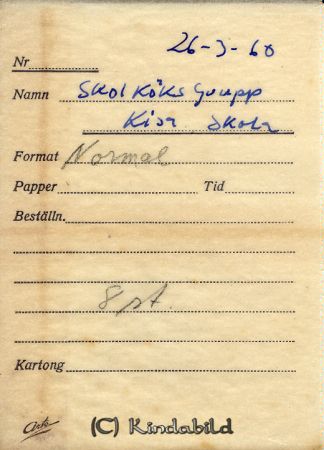 26-3-60
Nr
Namn Skolköks Grupp
Kisa Skola
Format Normal
Papper Tid
Beställn.
8 st.
Kartong
Ark
(C) Kindabild